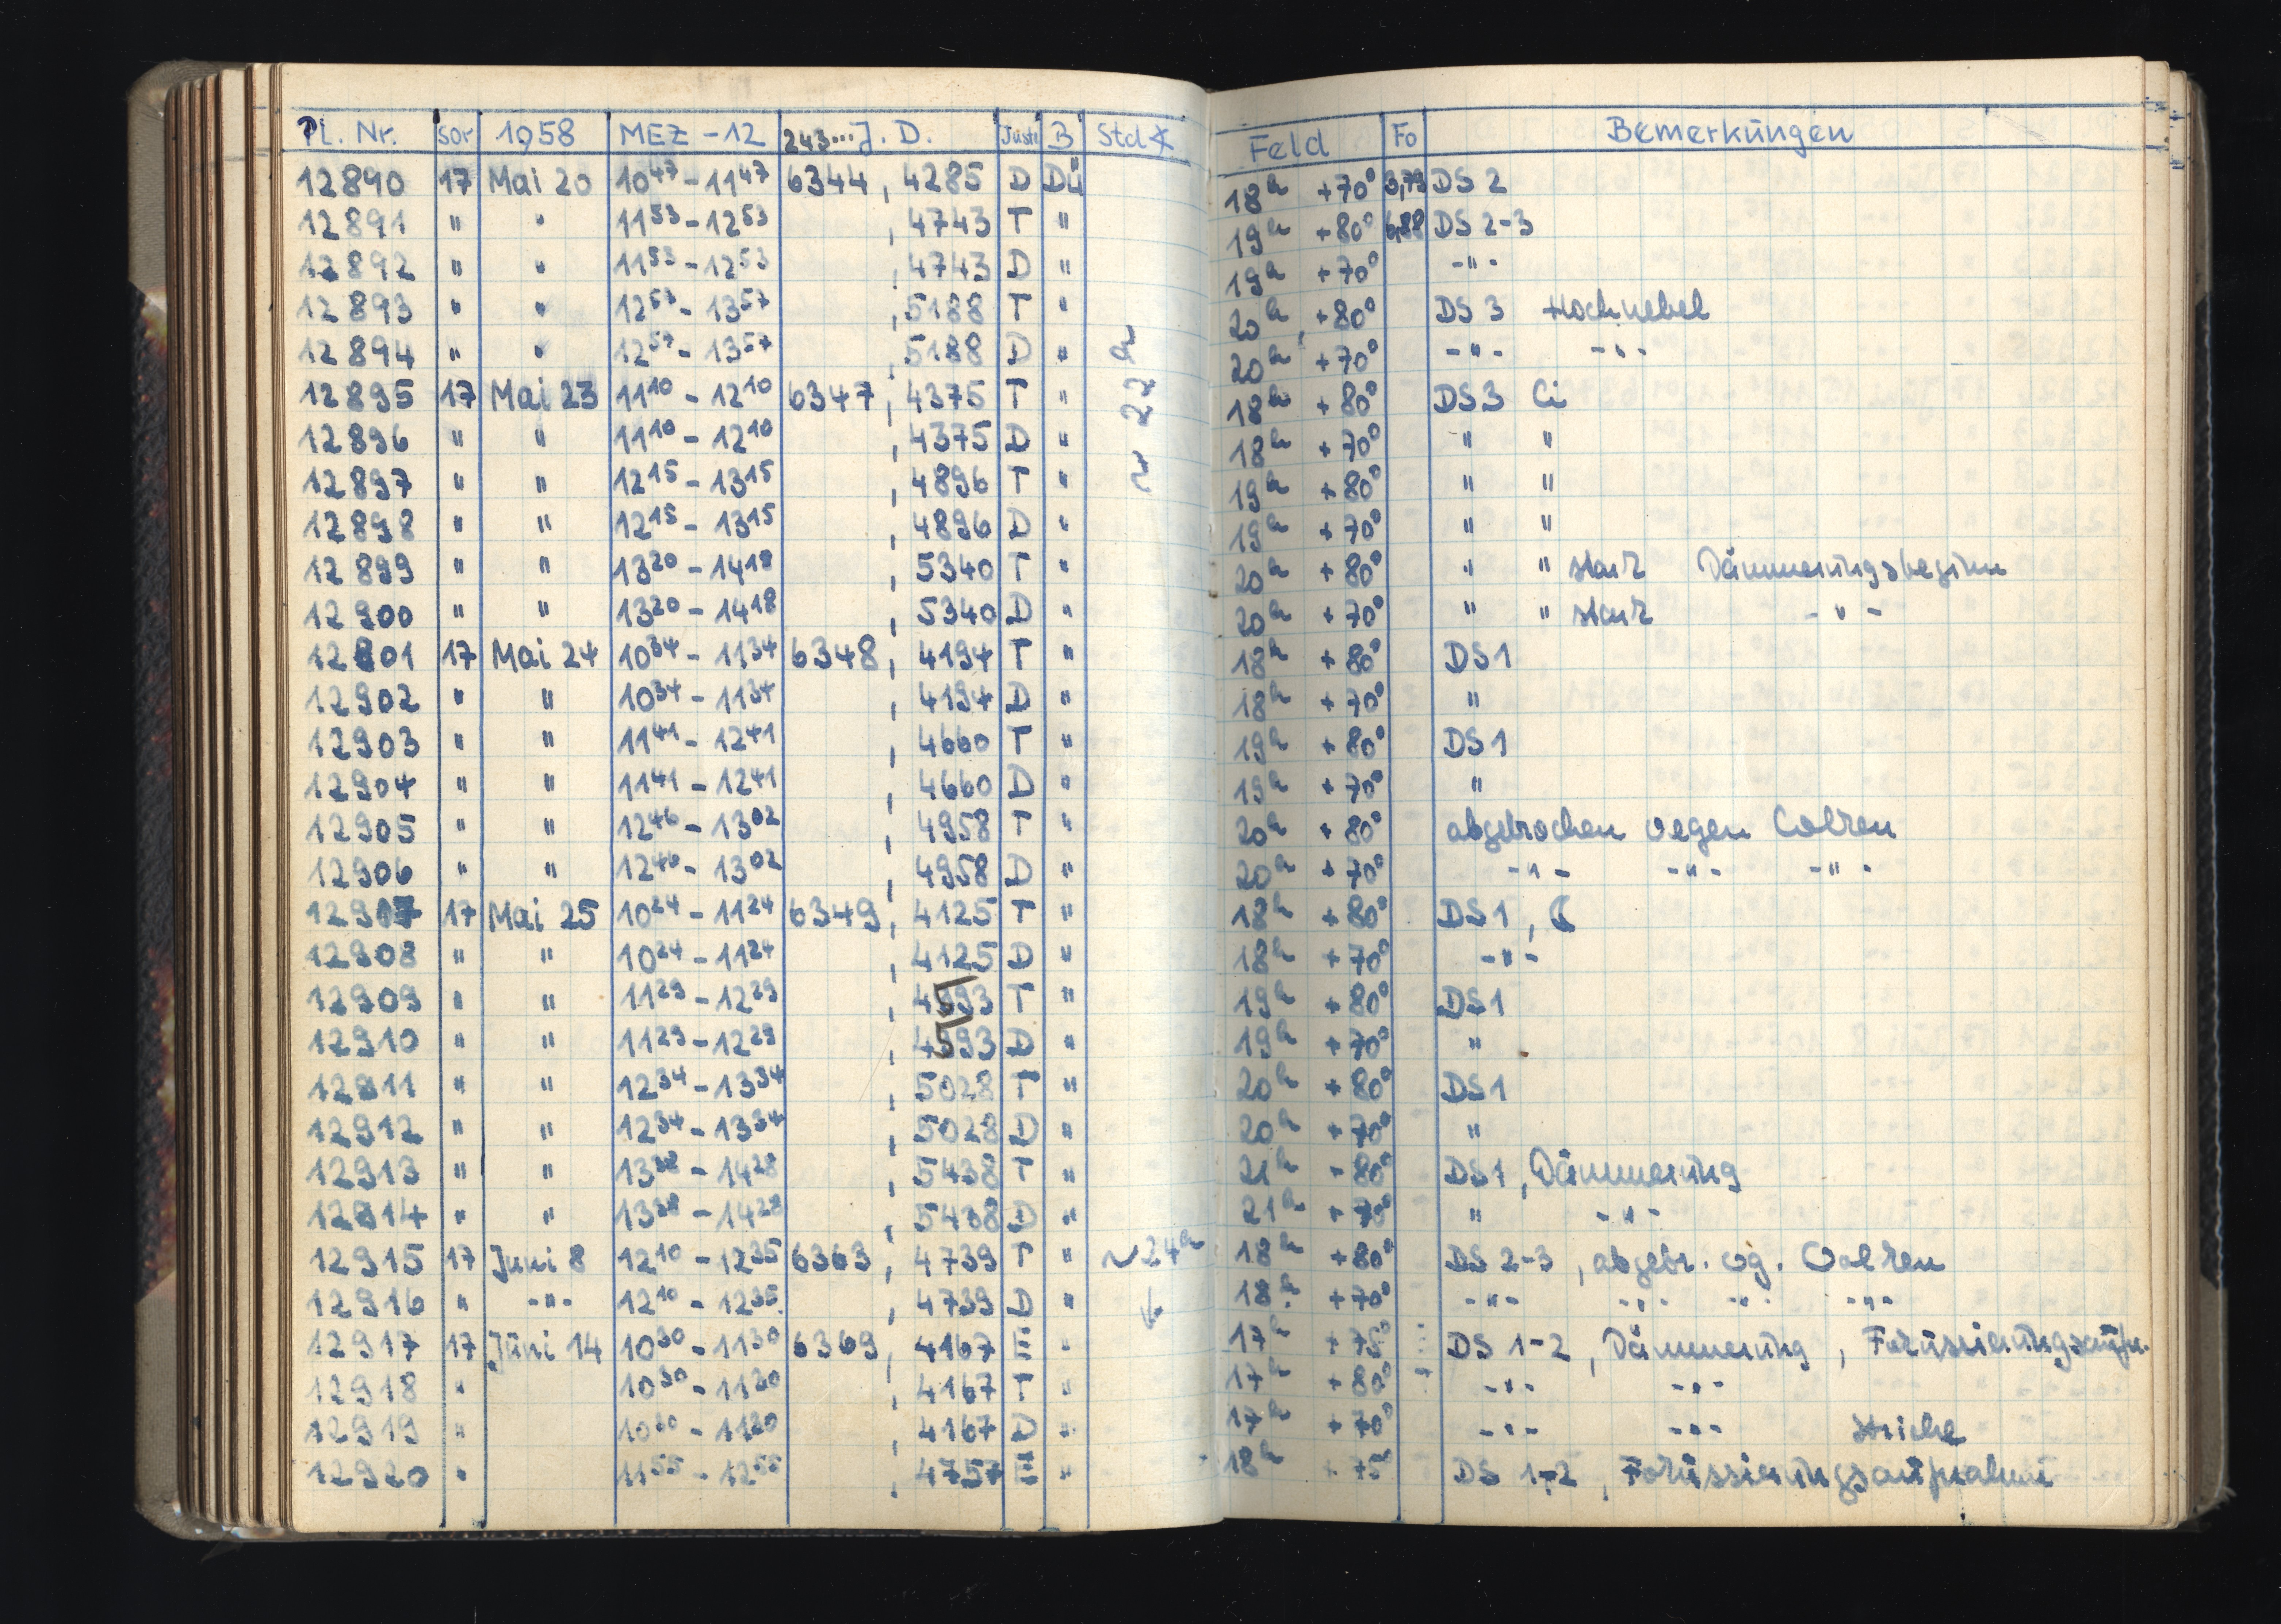 Pl. Nr. Sor 1958 MEZ -12 243... J. D. Justr. B Std∢ Feld Fo Bemerkungen
12890 17 Mai 20 10⁴⁷-11⁴⁷ 6344, 4285 D Dü 18ʰ +70° 3,79 DS 2
12891 " " 11⁵³-12⁵³ , 4743 T " 19ʰ +80° 6,88 DS 2-3
12892 " " 11⁵³-12⁵³ , 4743 D " 19ʰ +70° -"-
12893 " " 12⁵⁷-13⁵⁷ , 5188 T " 20ʰ +80° DS 3 Hochnebel
12894 " " 12⁵⁷-13⁵⁷ , 5188 D " 20ʰ +70° -"- -"-
12895 17 Mai 23 11¹⁰-12¹⁰ 6347, 4375 T " ~ 22ʰ 18ʰ +80° DS3 Ci
12896 " " 11¹⁰-12¹⁰ , 4375 D " 18ʰ +70° " "
12897 " " 12¹⁵-13¹⁵ , 4896 T " 19ʰ +80° " "
12898 " " 12¹⁵-13¹⁵ , 4896 D " 19ʰ +70° " "
12899 " " 13²⁰-14¹⁸ , 5340 T " 20ʰ +80° " " stark Dämmerungsbeginn
12900 " " 13²⁰-14¹⁸ , 5340 D " 20ʰ +70° " " stark -"-
12901 17 Mai 24 10³⁴-11³⁴ 6348, 4194 T " 18ʰ +80° DS1
12902 " " 10³⁴-11³⁴ , 4194 D " 18ʰ +70° "
12903 " " 11⁴¹-12⁴¹ , 4660 T " 19ʰ +80° DS1
12904 " " 11⁴¹-12⁴¹ , 4660 D " 19ʰ +70° "
12905 " " 12⁴⁶-13⁰² , 4958 T " 20ʰ +80° abgebrochen wegen Wolken
12906 " " 12⁴⁶-13⁰² , 4958 D " 20ʰ +70° -"- -"- -"-
12907 17 Mai 25 10²⁴-11²⁴ 6349, 4125 T " 18ʰ +80° DS1, ☾
12908 " " 10²⁴-11²⁴ , 4125 D " 18ʰ +70° -"-
12909 " " 11²⁹-12²⁹ , 4593 T " 19ʰ +80° DS1
12910 " " 11²⁹-12²⁹ , 4593 D " 19ʰ +70° "
12911 " " 12³⁴-13³⁴ , 5028 T " 20ʰ +80° DS1
12912 " " 12³⁴-13³⁴ , 5028 D " 20ʰ +70° "
12913 " " 13³⁸-14²⁸ , 5438 T " 21ʰ +80° DS1, Dämmerung
12914 " " 13³⁸-14²⁸ , 5438 D " 21ʰ +70° " -"-
12915 17 Juni 8 12¹⁰-12³⁵ 6363, 4739 T " ~24ʰ 18ʰ +80° DS 2-3, abgebr. wg. Wolken
12916 " -"- 12¹⁰-12³⁵ , 4739 D " ↓ 18ʰ +70° -"- -"- -"- -"-
12917 17 Juni 14 10³⁰-11³⁰ 6369, 4167 E " 17ʰ +75° DS 1-2, Dämmerung, Fokussierungsaufn.
12918 " 10³⁰-11³⁰ , 4167 T " 17ʰ +80° -"- -"-
12919 " 10³⁰-11³⁰ , 4167 D " 17ʰ +70° -"- -"- Striche
12920 " 11⁵⁵-12⁵⁵ , 4757 E " 18ʰ +75° DS 1-2, Fokussierungsaufnahme